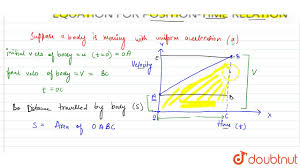 EQUATION FOR POSITION-TIME RELATION
Suppose a body is moving with uniform acceleration (a)
initial velo of body = u (t=0) = OA
final velo of body = V = BC
t = OC
So Distance travelled by body (S)
S = Area of OABC
Velocity
Y
E
B
A
D
V
O
C
X
time (t)
doubtnut